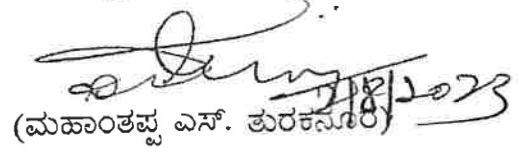 7/8/2023
(ಮಹಾಂತಪ್ಪ ಎಸ್. ತುರಕನೂರ)